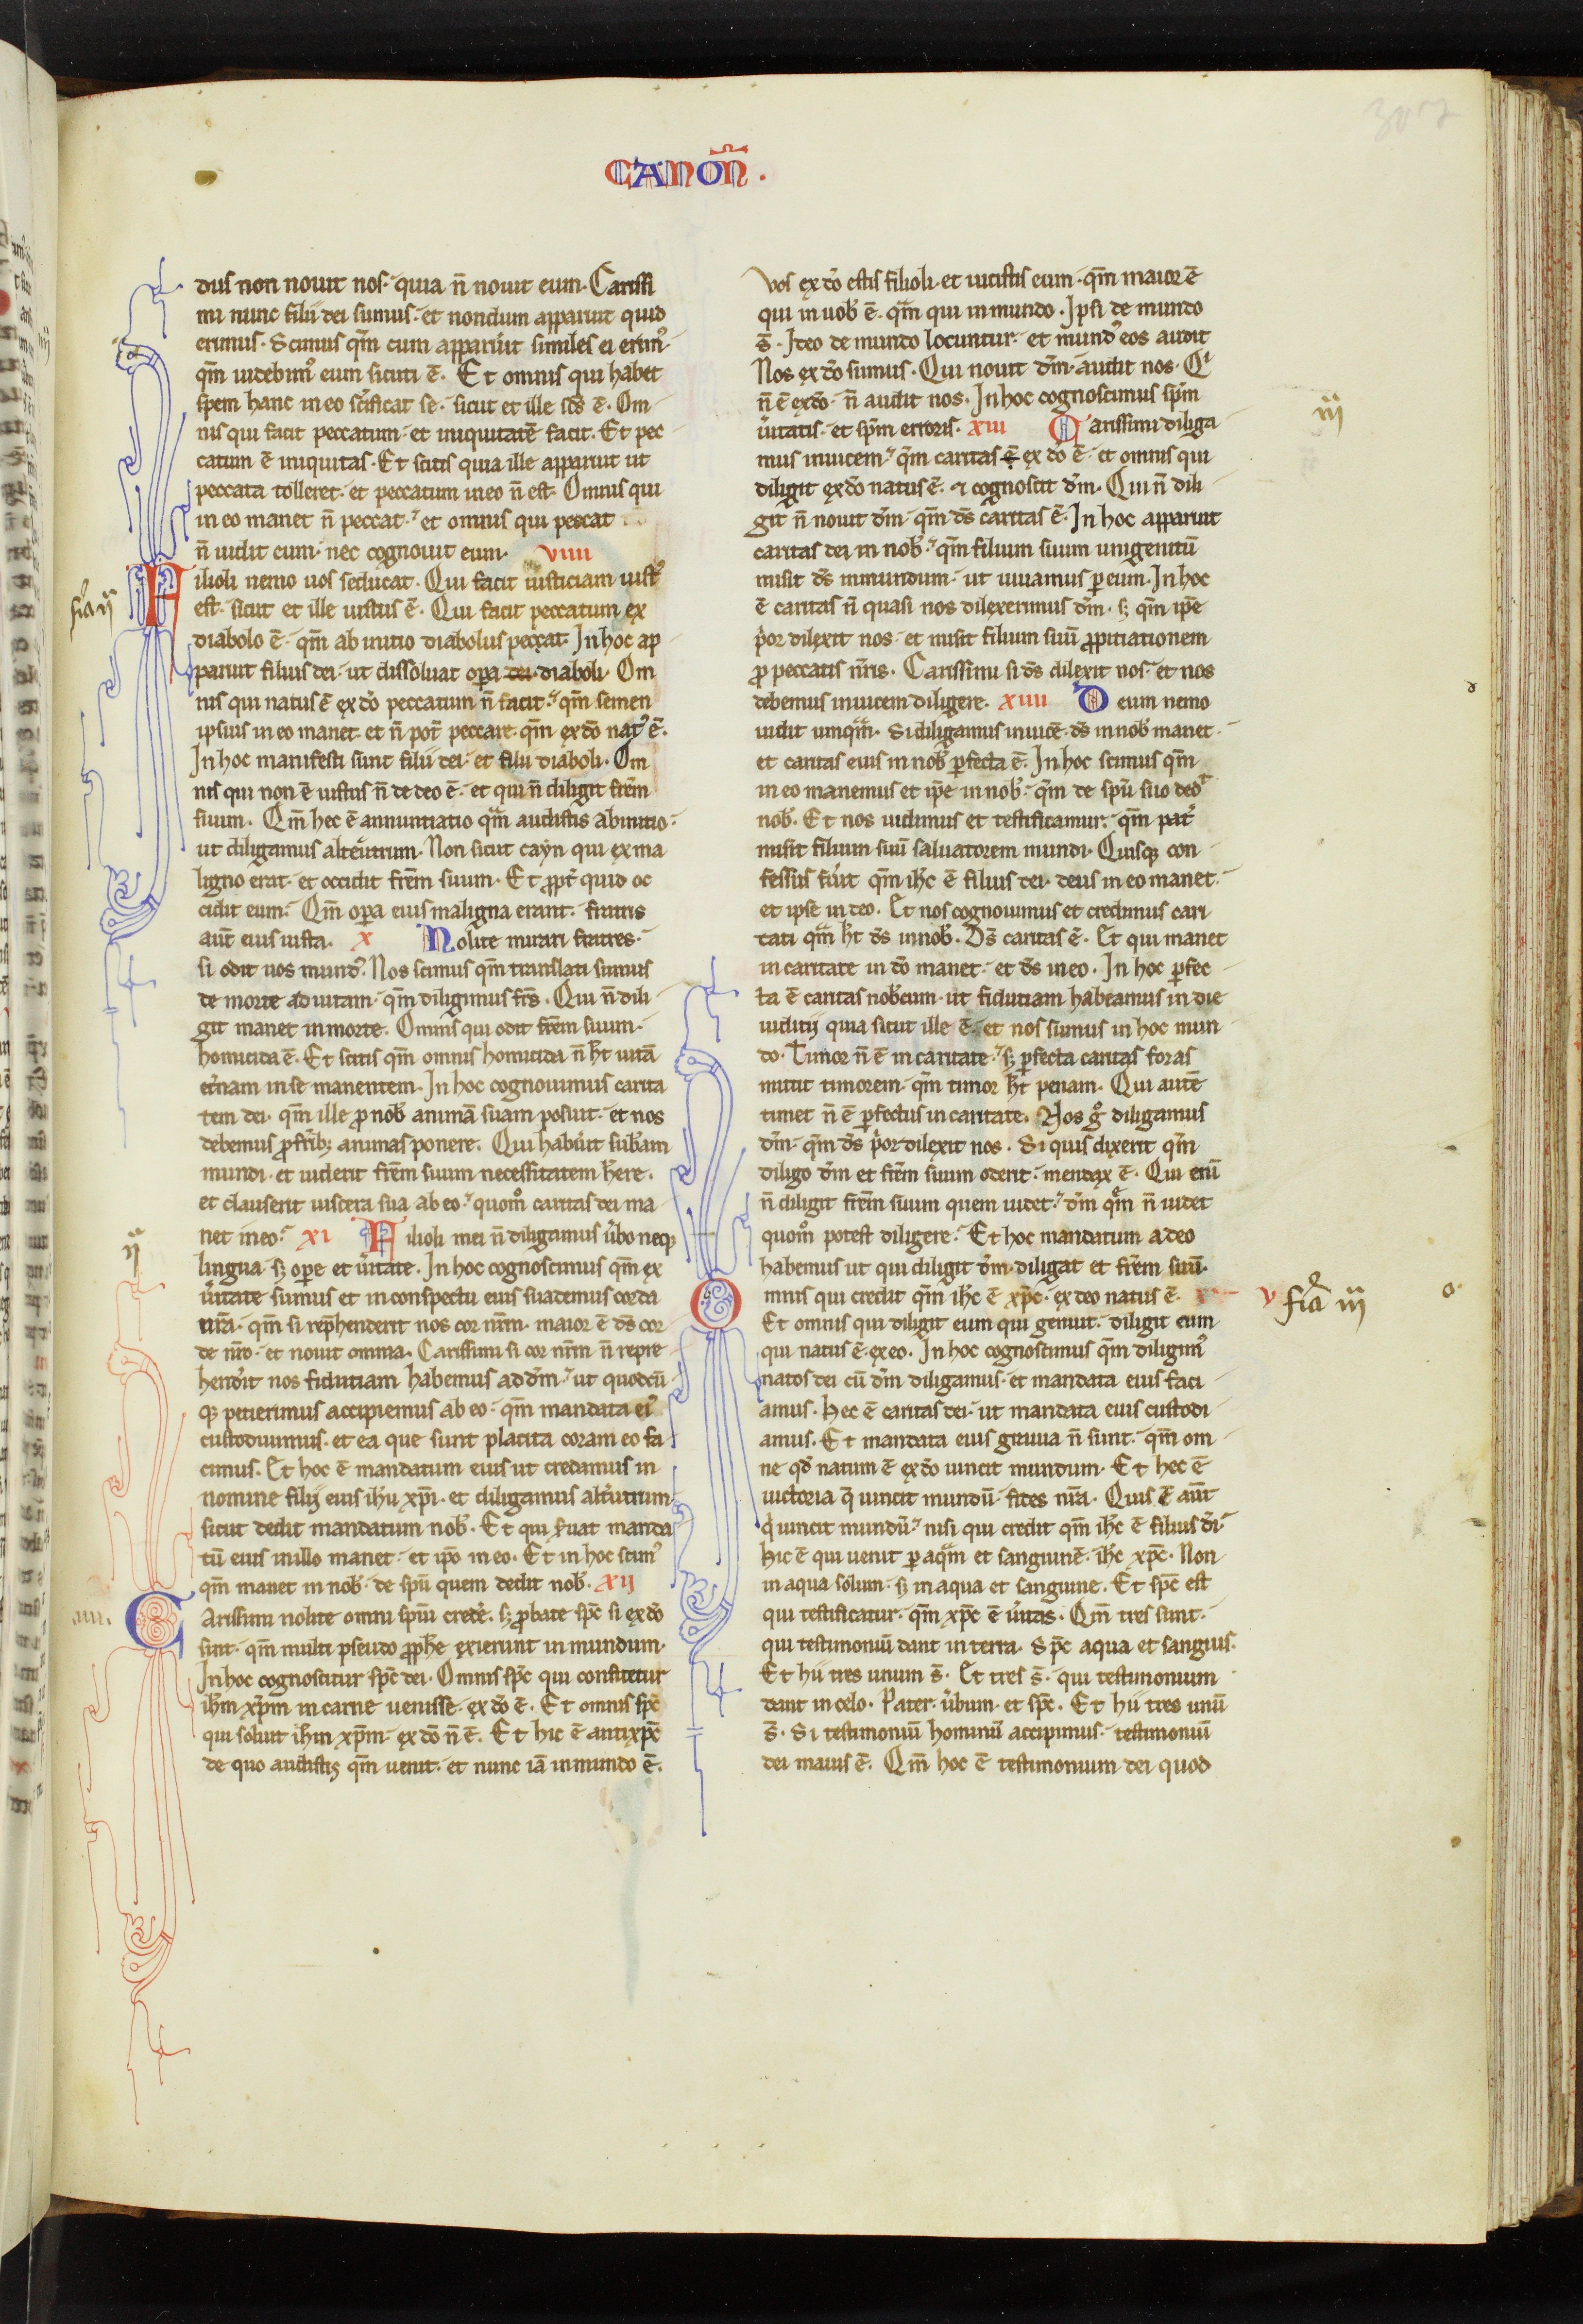 CANOÑ.
307
dus non nouit nos. quia n̄ nouit eum. Carissi
mi nunc filii dei sumus. et nondum apparuit quid
erimus. Scimus qm̄ cum apparuit similes ei erimꝰ.
qm̄ uidebimꝰ eum sicuti ē. Et omnis qui habet
spem hanc in eo scīficat se. sicut et ille scs̄ ē. Om
nis qui facit peccatum. et iniquitatē facit. Et pec
catum ē iniquitas. Et scitis quia ille apparuit ut
peccata tolleret. et peccatum in eo n̄ est. Omnis qui
in eo manet n̄ peccat. et omnis qui peccat
n̄ uidit eum. nec cognouit eum. viiii
Filioli nemo uos seducat. Qui facit iusticiam iustꝰ
est. sicut et ille iustus ē. Qui facit peccatum ex
diabolo ē. qm̄ ab initio diabolus peccat. In hoc ap
paruit filius dei. ut dissoluat oꝑa dei diaboli. Om
nis qui natus ē ex dō peccatum n̄ facit. qm̄ semen
ipsius in eo manet. et n̄ pot̄ peccare. qm̄ ex dō natꝰ ē.
In hoc manifesti sunt filii dei. et filii diaboli. Om
nis qui non ē iustus n̄ de deo ē. et qui n̄ diligit frēm
suum. Qm̄ hec ē annuntiatio quā audistis ab initio.
ut diligamus alteutrum. Non sicut cayn qui ex ma
ligno erat. et occidit frēm suum. Et ꝓpt̄ quid oc
cidit eum. Qm̄ oꝑa eius maligna erant. fratris
aut̄ eius iusta. x Nolite mirari fratres.
si odit uos mundꝰ. Nos scimus qm̄ translati sumus
de morte ad uitam. qm̄ diligimus frs̄. Qui n̄ dili
git manet in morte. Omnis qui odit frēm suum.
homicida ē. Et scitis qm̄ omnis homicida n̄ ht̄ uitā
et̄nam in se manentem. In hoc cognouimus carita
tem dei. qm̄ ille ꝓ nob̄ animā suam posuit. et nos
debemus ꝓ frīb; animas ponere. Qui habuit sub̄am
mundi. et uiderit frēm suum necessitatem h̄ere.
et clauserit uiscera sua ab eo. quomͦ caritas dei ma
net in eo. xi Filioli mei n̄ diligamus ūbo neqꝫ
lingua. sꝫ oꝑe et ūitate. In hoc cognoscimus qm̄ ex
ūitate sumus et in conspectu eius suademus corda
nrā. qm̄ si rep̄henderit nos cor nrm̄. maior ē ds̄ cor
de nrō. et nouit omnia. Carissimi si cor nrm̄ n̄ repre
hend̄it nos fidutiam habemus ad dm̄. ut quodcū
qꝫ petierimus accipiemus ab eo. qm̄ mandata eiꝰ
custodiuimus. et ea que sunt placita coram eo fa
cimus. Et hoc ē mandatum eius ut credamus in
nomine filij eius ih̄u xp̄i. et diligamus alt̄utrum
sicut dedit mandatum nob̄. Et qui s̄uat manda
tū eius in illo manet. et ip̄o in eo. Et in hoc scimꝰ
qm̄ manet in nob̄. de spū quem dedit nob̄. xij
Carissimi nolite omni spūi cred̄e. sꝫ ꝓbate spc̄ si ex dō
sint. qm̄ multi pseudo ꝓphē exierunt in mundum.
In hoc cognoscitur spc̄ dei. Omnis spc̄ qui confitetur
ih̄m xp̄m in carne uenisse. ex dō ē. Et omnis spc̄
qui soluit ih̄m xp̄m. ex dō n̄ ē. Et hic ē antixp̄c
de quo audistis qm̄ uenit. et nunc iā in mundo ē.
fīa ij
ij
iiii.
Vos ex dō estis filioli. et uicistis eum. qm̄ maior ē
qui in uob̄ ē. qm̄ qui in mundo. Ipsi de mundo
s̄. Ideo de mundo locuntur. et mundꝰ eos audit
Nos ex dō sumus. Qui nouit dm̄. audit nos. Qi
n̄ ē ex dō. n̄ audit nos. In hoc cognoscimus spm̄
ūitatis. et spm̄ erroris. xiii Carissimi diliga
mus inuicem. qm̄ caritas ē ex dō ē. et omnis qui
diligit ex dō natus ē. ⁊ cognoscit dm̄. Qui n̄ dili
git n̄ nouit dm̄. qm̄ ds̄ caritas ē. In hoc apparuit
caritas dei in nob̄. qm̄ filium suum unigenitū
misit ds̄ in mundum. ut uiuamus ꝑ eum. In hoc
ē caritas n̄ quasi nos dilexerimus dm̄. sꝫ qm̄ ip̄e
p̄or dilexit nos. et misit filium suū ꝓpitiationem
ꝓ peccatis nrīs. Carissimi si ds̄ dilexit nos. et nos
debemus inuicem diligere. xiiii Deum nemo
uidit umqm̄. Si diligamus inuicē. ds̄ in nob̄ manet.
et caritas eius in nob̄ ꝑfecta ē. In hoc scimus qm̄
in eo manemus et ip̄e in nob̄. qm̄ de spū suo dedͭ
nob̄. Et nos uidimus et testificamur. qm̄ pat̄
misit filium suū saluatorem mundi. Quisqꝫ con
fessus fūit qm̄ ih̄c ē filius dei. deus in eo manet.
et ipse in deo. Et nos cognouimus et credimus cari
tati quā ht̄ ds̄ in nob̄. Ds̄ caritas ē. Et qui manet
in caritate in dō manet. et ds̄ in eo. In hoc ꝑfec
ta ē caritas nob̄cum. ut fidutiam habeamus in die
iuditij quia sicut ille ē. et nos sumus in hoc mun
do. Timor n̄ ē in caritate. sꝫ ꝑfecta caritas foras
mittit timorem. qm̄ timor ht̄ penam. Qui autē
timet n̄ ē ꝑfectus in caritate. Nos gͦ diligamus
dm̄. qm̄ ds̄ p̄or dilexit nos. Si quis dixerit qm̄
diligo dm̄ et frēm suum oderit. mendax ē. Qui enī
n̄ diligit frēm suum quem uidet. dm̄ quē n̄ uidet
quomͦ potest diligere. Et hoc mandatum a deo
habemus ut qui diligit dm̄. diligat et frēm suū.
Omnis qui credit qm̄ ih̄c ē xp̄c. ex deo natus ē. xv
Et omnis qui diligit eum qui genuit. diligit eum
qui natus ē. ex eo. In hoc cognoscimus qm̄ diligimꝰ
natos dei cū dm̄ diligamus. et mandata eius faci
amus. Hec ē caritas dei. ut mandata eius custodi
amus. Et mandata eius grauia n̄ sunt. qm̄ om
ne qd̄ natum ē ex dō uincit mundum. Et hec ē
uictoria q̄ uincit mundū. fides nrā. Quis ē aut̄
q̇ uincit mundū. nisi qui credit qm̄ ih̄c ē filius dī.
Hic ē qui uenit ꝑ aquā et sanguinē. ih̄c xp̄c. Non
in aqua solum. sꝫ in aqua et sanguine. Et spc̄ est
qui testificatur. qm̄ xp̄c ē ūitas. Qm̄ tres sunt.
qui testimoniū dant in terra. Spc̄ aqua et sanguis.
Et hii tres unum s̄. Et tres s̄. qui testimonium
dant in celo. Pater. ūbum. et spc̄. Et hii tres unū
s̄. Si testimoniū hominū accipimus. testimoniū
dei maius ē. Qm̄ hoc ē testimonium dei quod
iij
fīa iij